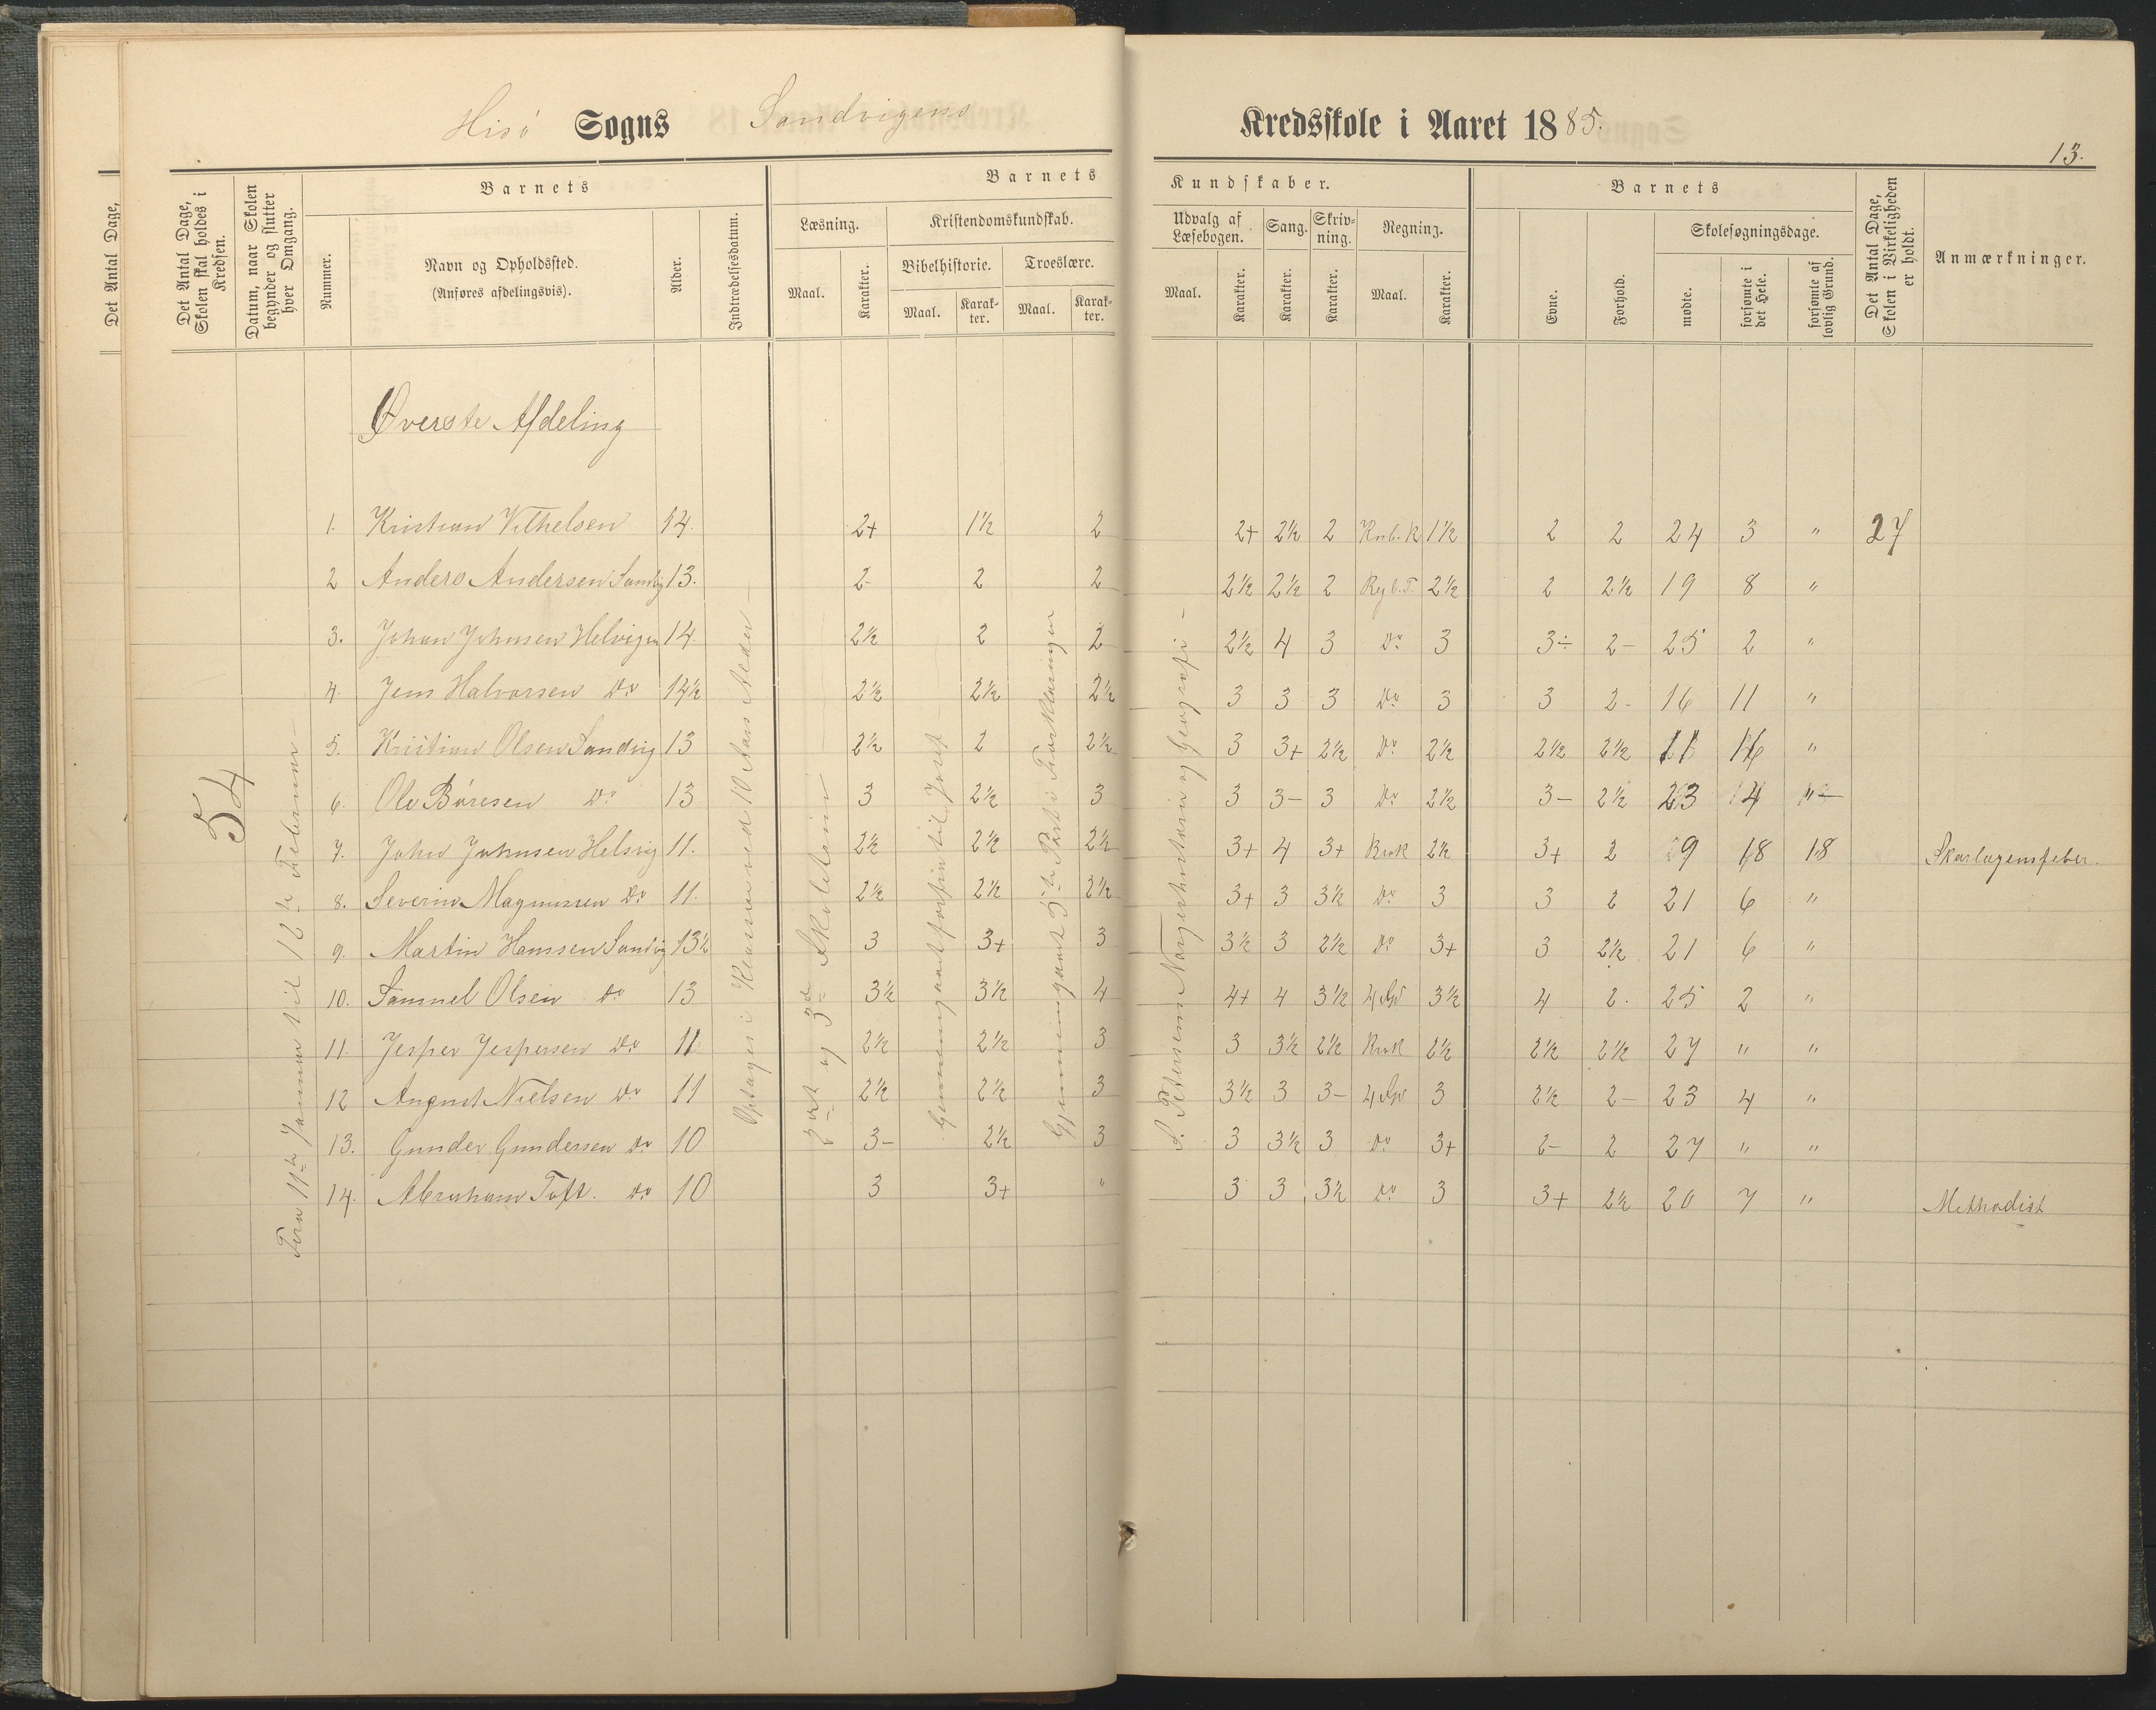 Hisö Sogns Sandvigens Kredsskole i Aaret 1885.
13.
Det Antal Dage,
Det Antal Dage, Skolen skal holdes i Kredsen.
Datum, naar Skolen begynder og slutter hver Omgang.
Barnets
Nummer.
Navn og Opholdssted.
(Anføres afdelingsvis).
Alder.
Indtrædelsesdatum.
Barnets Kundskaber.
Læsning.
Maal.
Karakter.
Kristendomskundskab.
Bibelhistorie.
Maal.
Karakter.
Troeslære.
Maal.
Karakter.
Udvalg af Læsebogen.
Maal.
Karakter.
Sang.
Karakter.
Skrivning.
Karakter.
Regning.
Maal.
Karakter.
Barnets
Evne.
Forhold.
Skolesøgningsdage.
mødte.
forsømte i det Hele.
forsømte af lovlig Grund.
Det Antal Dage, Skolen i Virkeligheden er holdt.
Anmærkninger.
Øverste Afdeling
54
Fra 11te Januar til 12te Februar
Optages i Klassen ved 10 Aars Alderen
2det og 3die Skoletrin
Gjennemgaaet forfra til Josef
Gjennemgaaet 3die Part i Forklaringen
S. Petersens Norgeshistorie og Geografi
1. Kristian Vilhelsen 14. 2+ 1½ 2 2+ 2½ 2 1½ 2 2 24 3 " 27
2 Anders Andersen Sandvig 13. 2- 2 2 2½ 2½ 2 2½ 2 2½ 19 8 "
3. Johan Johnsen Helvigen 14. 2½ 2 2 2½ 4 3 Do 3 3÷ 2- 25 2 "
4. Jens Halvorsen Do 14½ 2½ 2½ 2½ 3 3 3 Do 3 3 2- 16 11 "
5. Kristian Olsen Sandvig 13 2½ 2 2½ 3 3+ 2½ Do 2½ 2½ 2½ 11 16 "
6. Ole Börresen Do 13 3 2½ 3 3 3- 3 Do 2½ 3- 2½ 23 4 "
7. John Johnsen Helvig 11. 2½ 2½ 2½ 3+ 4 3+ Brøk 2½ 3+ 2 9 18 18 Skarlagensfeber.
8. Severin Magnussen Do 11. 2½ 2½ 2½ 3+ 3 3½ Do 3 3 2 21 6 "
9. Martin Hanssen Sandvig 13½ 3 3+ 3 3½ 3 2½ Do 3+ 3 2½ 21 6 "
10. Samuel Olsen Do 13 3½ 3½ 4 4+ 4 3½ 4 Sp 3½ 4 2. 25 2 "
11. Jesper Jespersen Do 11 2½ 2½ 3 3 3½ 2½ Brøk 2½ 2½ 2½ 27 " "
12 August Nielsen Do 11 2½ 2½ 3 3½ 3 3- 4 Sp 3 2½ 2- 23 4 "
13. Gunder Gundersen Do 10 3- 2½ 3 3 3½ 3 Do 3+ 2- 2 27 " "
14. Abraham Toft. Do 10 3 3+ " 3 3 3½ Do 3 3+ 2½ 20 7 " Methodist